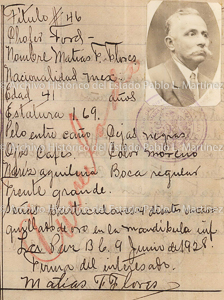 Título # 46
Chofer Ford-
Nombre Matias T. Flores
Nacionalidad mex.
Edad 41 años
Estatura 1.69.
Pelo entre cano Cejas negras
Ojos Cafes Color moreno
Nariz aguileña Boca regular
Frente grande.
Señas particulares dientes
en la mandíbula inf
La Paz B.C. 9 Junio de 1928.
Firma del interesado.
Matias T. Flores